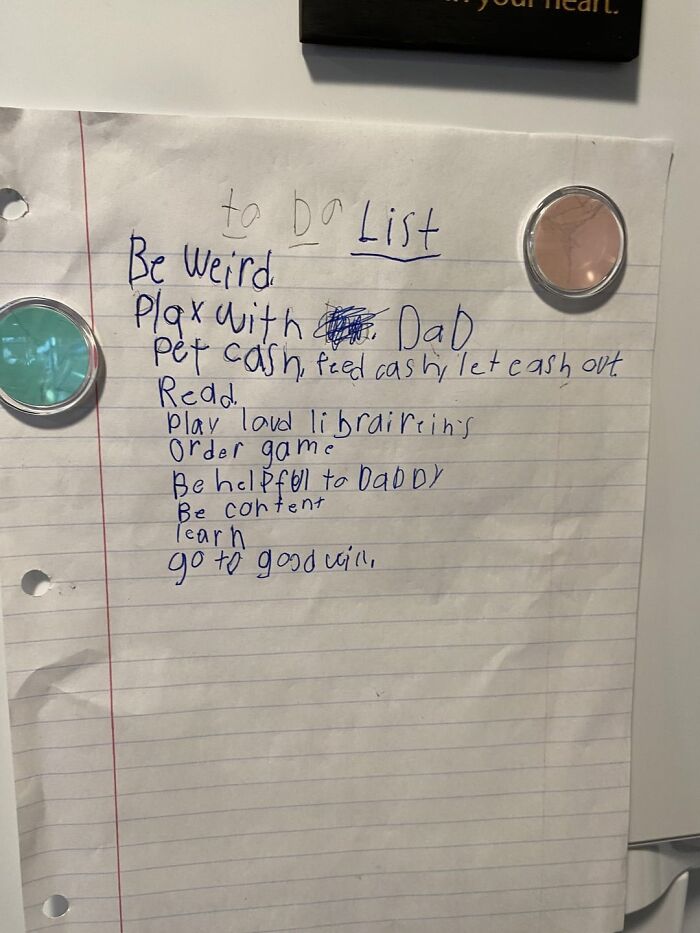 your heart.
to Do List
Be Weird.
Play with DaD
Pet cash, feed cash, let cash out
Read.
Play loud libraireins
Order game
Be helpful to DaDDY
Be content
learn
go to good will.